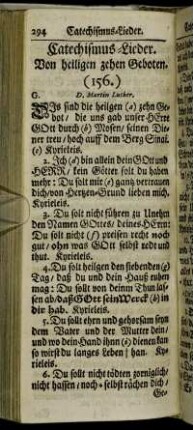 294 Catechismus-Lieder.
Catechismus-Lieder.
Von heiligen zehen Geboten.
(156.)
G. D. Martin Luther.
DIs sind die heilgen (a) zehn Ge-
bot/ die uns gab unser HErre
GOtt durch (b) Mosen/ seinen Die-
ner treu/ hoch auff dem Berg Sinai.
(c) Kyrieleis.
2. Ich (d) bin allein dein GOtt und
HERR/ kein Götter solt du haben
mehr: Du solt mir (e) gantz vertrauen
dich/ von Hertzen-Grund lieben mich.
Kyrieleis.
3. Du solt nicht führen zu Unehrn
den Namen GOttes/ deines HErrn:
Du solt nicht (f) preisen recht noch
gut/ ohn was GOtt selbst redt und
thut. Kyrieleis.
4. Du solt heilgen den siebenden (g)
Tag/ daß du und dein Hauß ruhen
mag: Du solt von deinm Thun las-
sen ab/ daß GOtt sein Werck (h) in
dir hab. Kyrieleis.
5. Du solt ehrn und gehorsam seyn
dem Vater und der Mutter dein/
und wo dein Hand ihnn (i) dienen kan
so wirst du langes Leben han. Ky-
rieleis.
6. Du solt nicht tödten zorniglich/
nicht hassen/ noch selbst rächen dich/
Ge-